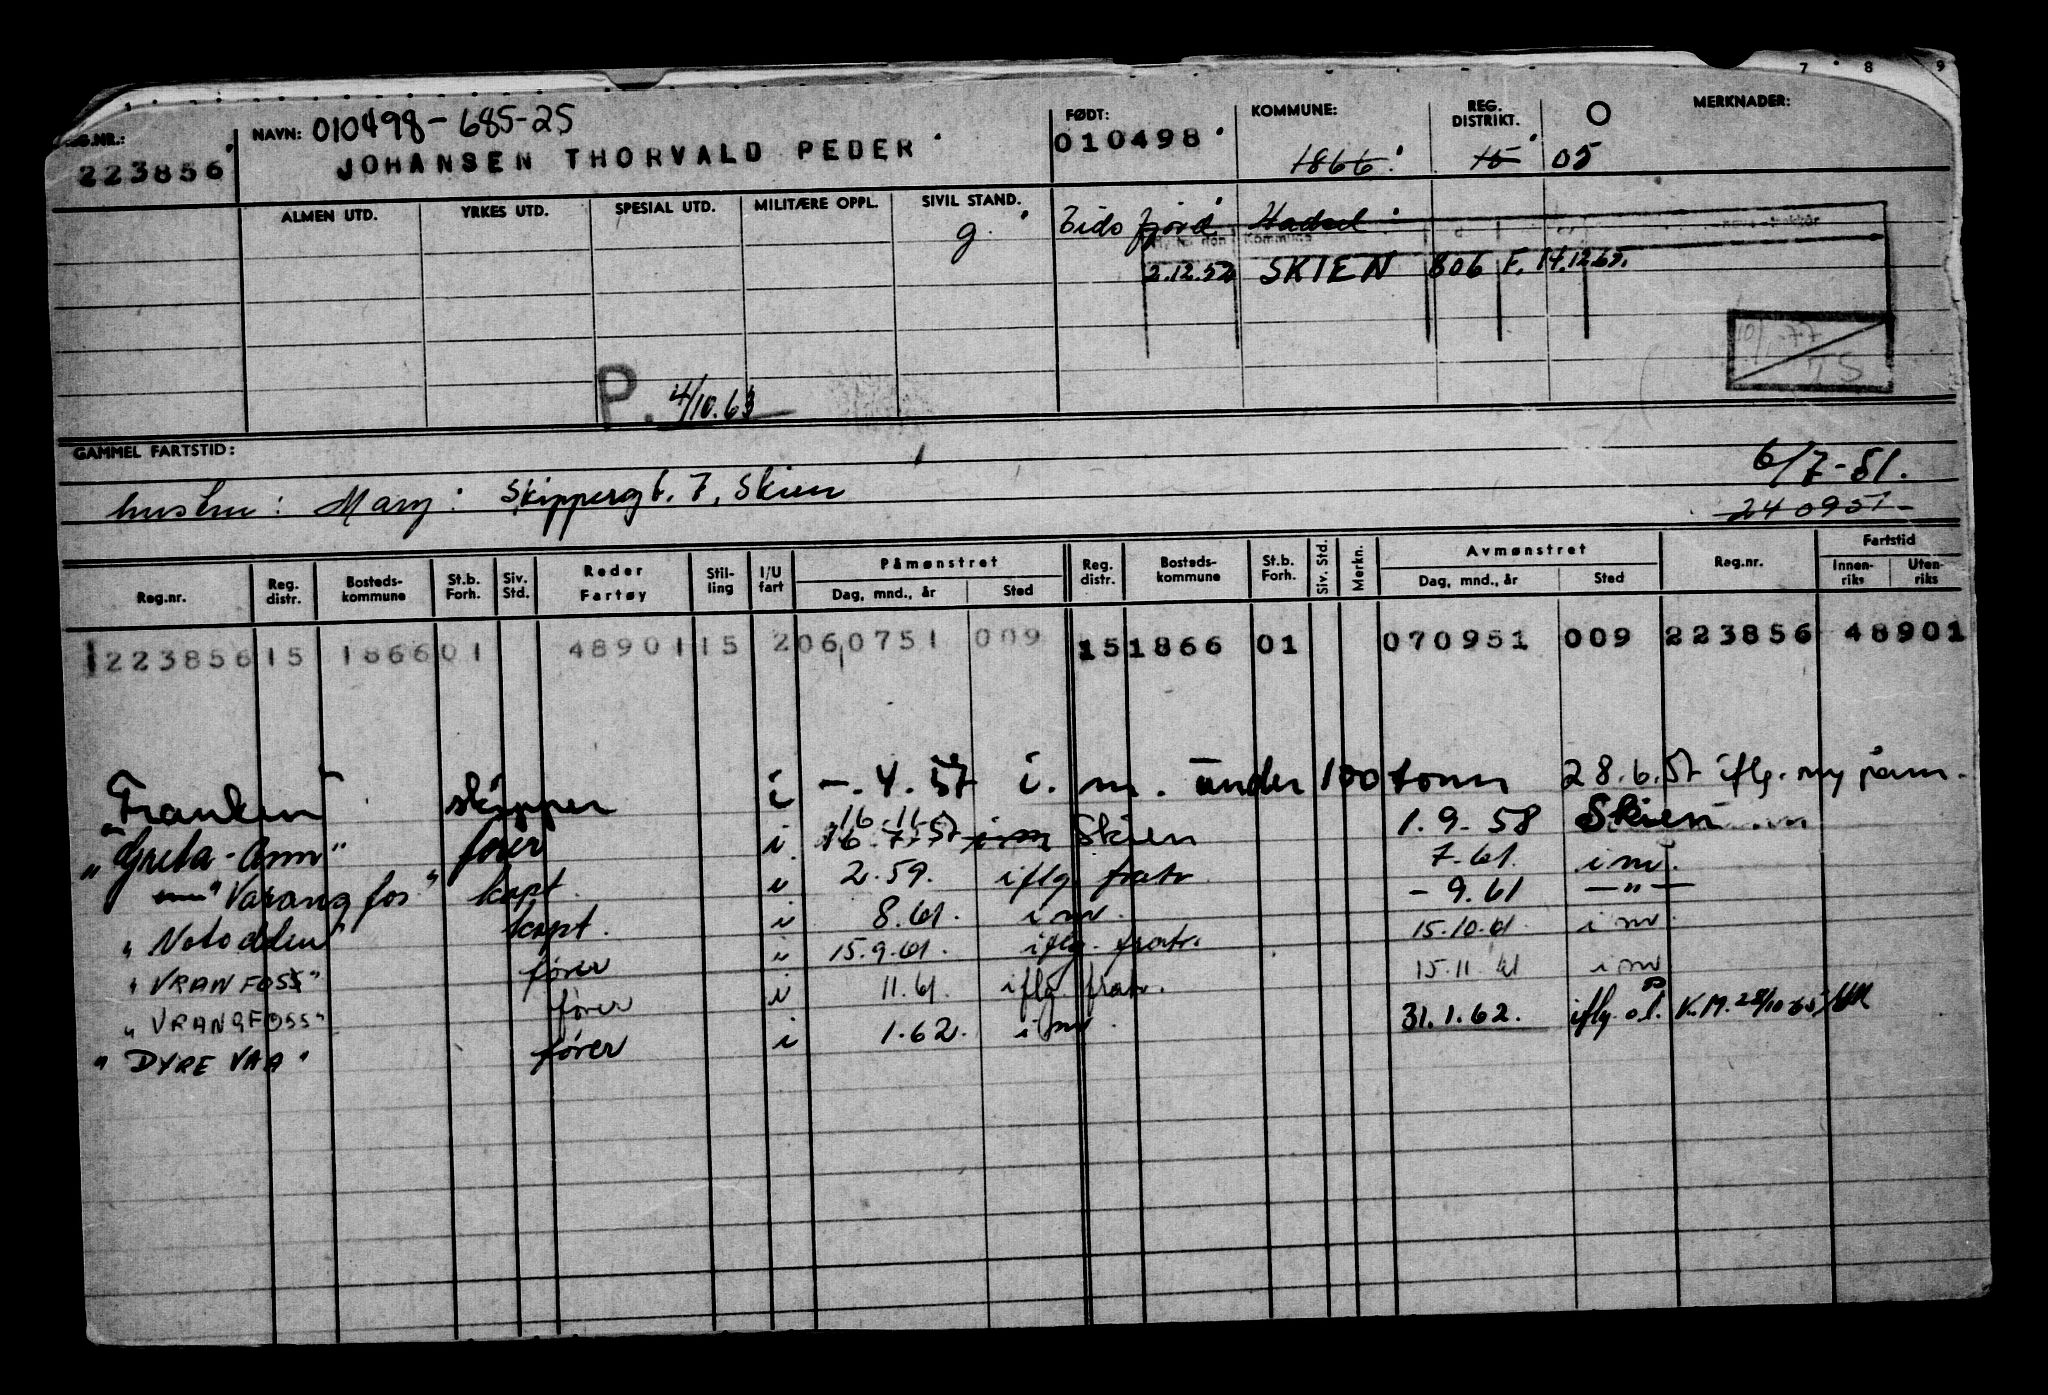 7 8 9
REG.NR.: NAVN: 010498-685-25 FØDT: KOMMUNE: REG. DISTRIKT. O MERKNADER:
223856 JOHANSEN THORVALD PEDER 010498 1866 15 05
ALMEN UTD. YRKES UTD. SPESIAL UTD. MILITÆRE OPPL. SIVIL STAND.
g Eidsfjord Hadsel
Kommune
2.12.52 SKIEN 806 F. 17.12.65.
10/1-77
P. 4/10.63
GAMMEL FARTSTID:
6/7-51.
hustru: Mary: Skippergt. 7, Skien
240951
Reg.nr. Reg. distr. Bosteds-kommune St.b. Forh. Siv. Std. Reder Fartøy Stil-ling I/U fart Påmønstret Dag, mnd., år Sted Reg. distr. Bosteds-kommune St.b. Forh. Siv. Std. Merkn. Avmønstret Dag, mnd., år Sted Reg.nr. Fartstid Innen-riks Uten-riks
1223856 15 1866 01 48901 15 2 060751 009 15 1866 01 070951 009 223856 48901
skipper i -.4.57 i. m. under 100 tonn 28.6.57 iflg. ny påm.
16.11.
"Greta-Ann" fører i 16.7.57 i m Skien 1.9.58 Skien
"Varangfos" kapt. i 2.59. iflg. fratr. 7.61. i m.
"Notodden" kapt. i 8.61. i m. -9.61 —"—
"VRANFOSS" fører i 15.9.61. iflg. fratr. 15.10.61 i m
"VRANGFOSS" fører i 11.61. iflg. fratr. 15.11.61 i m
"DYRE VAA" fører i 1.62. i m. 31.1.62. iflg. o.l. K.M. 28/10-65